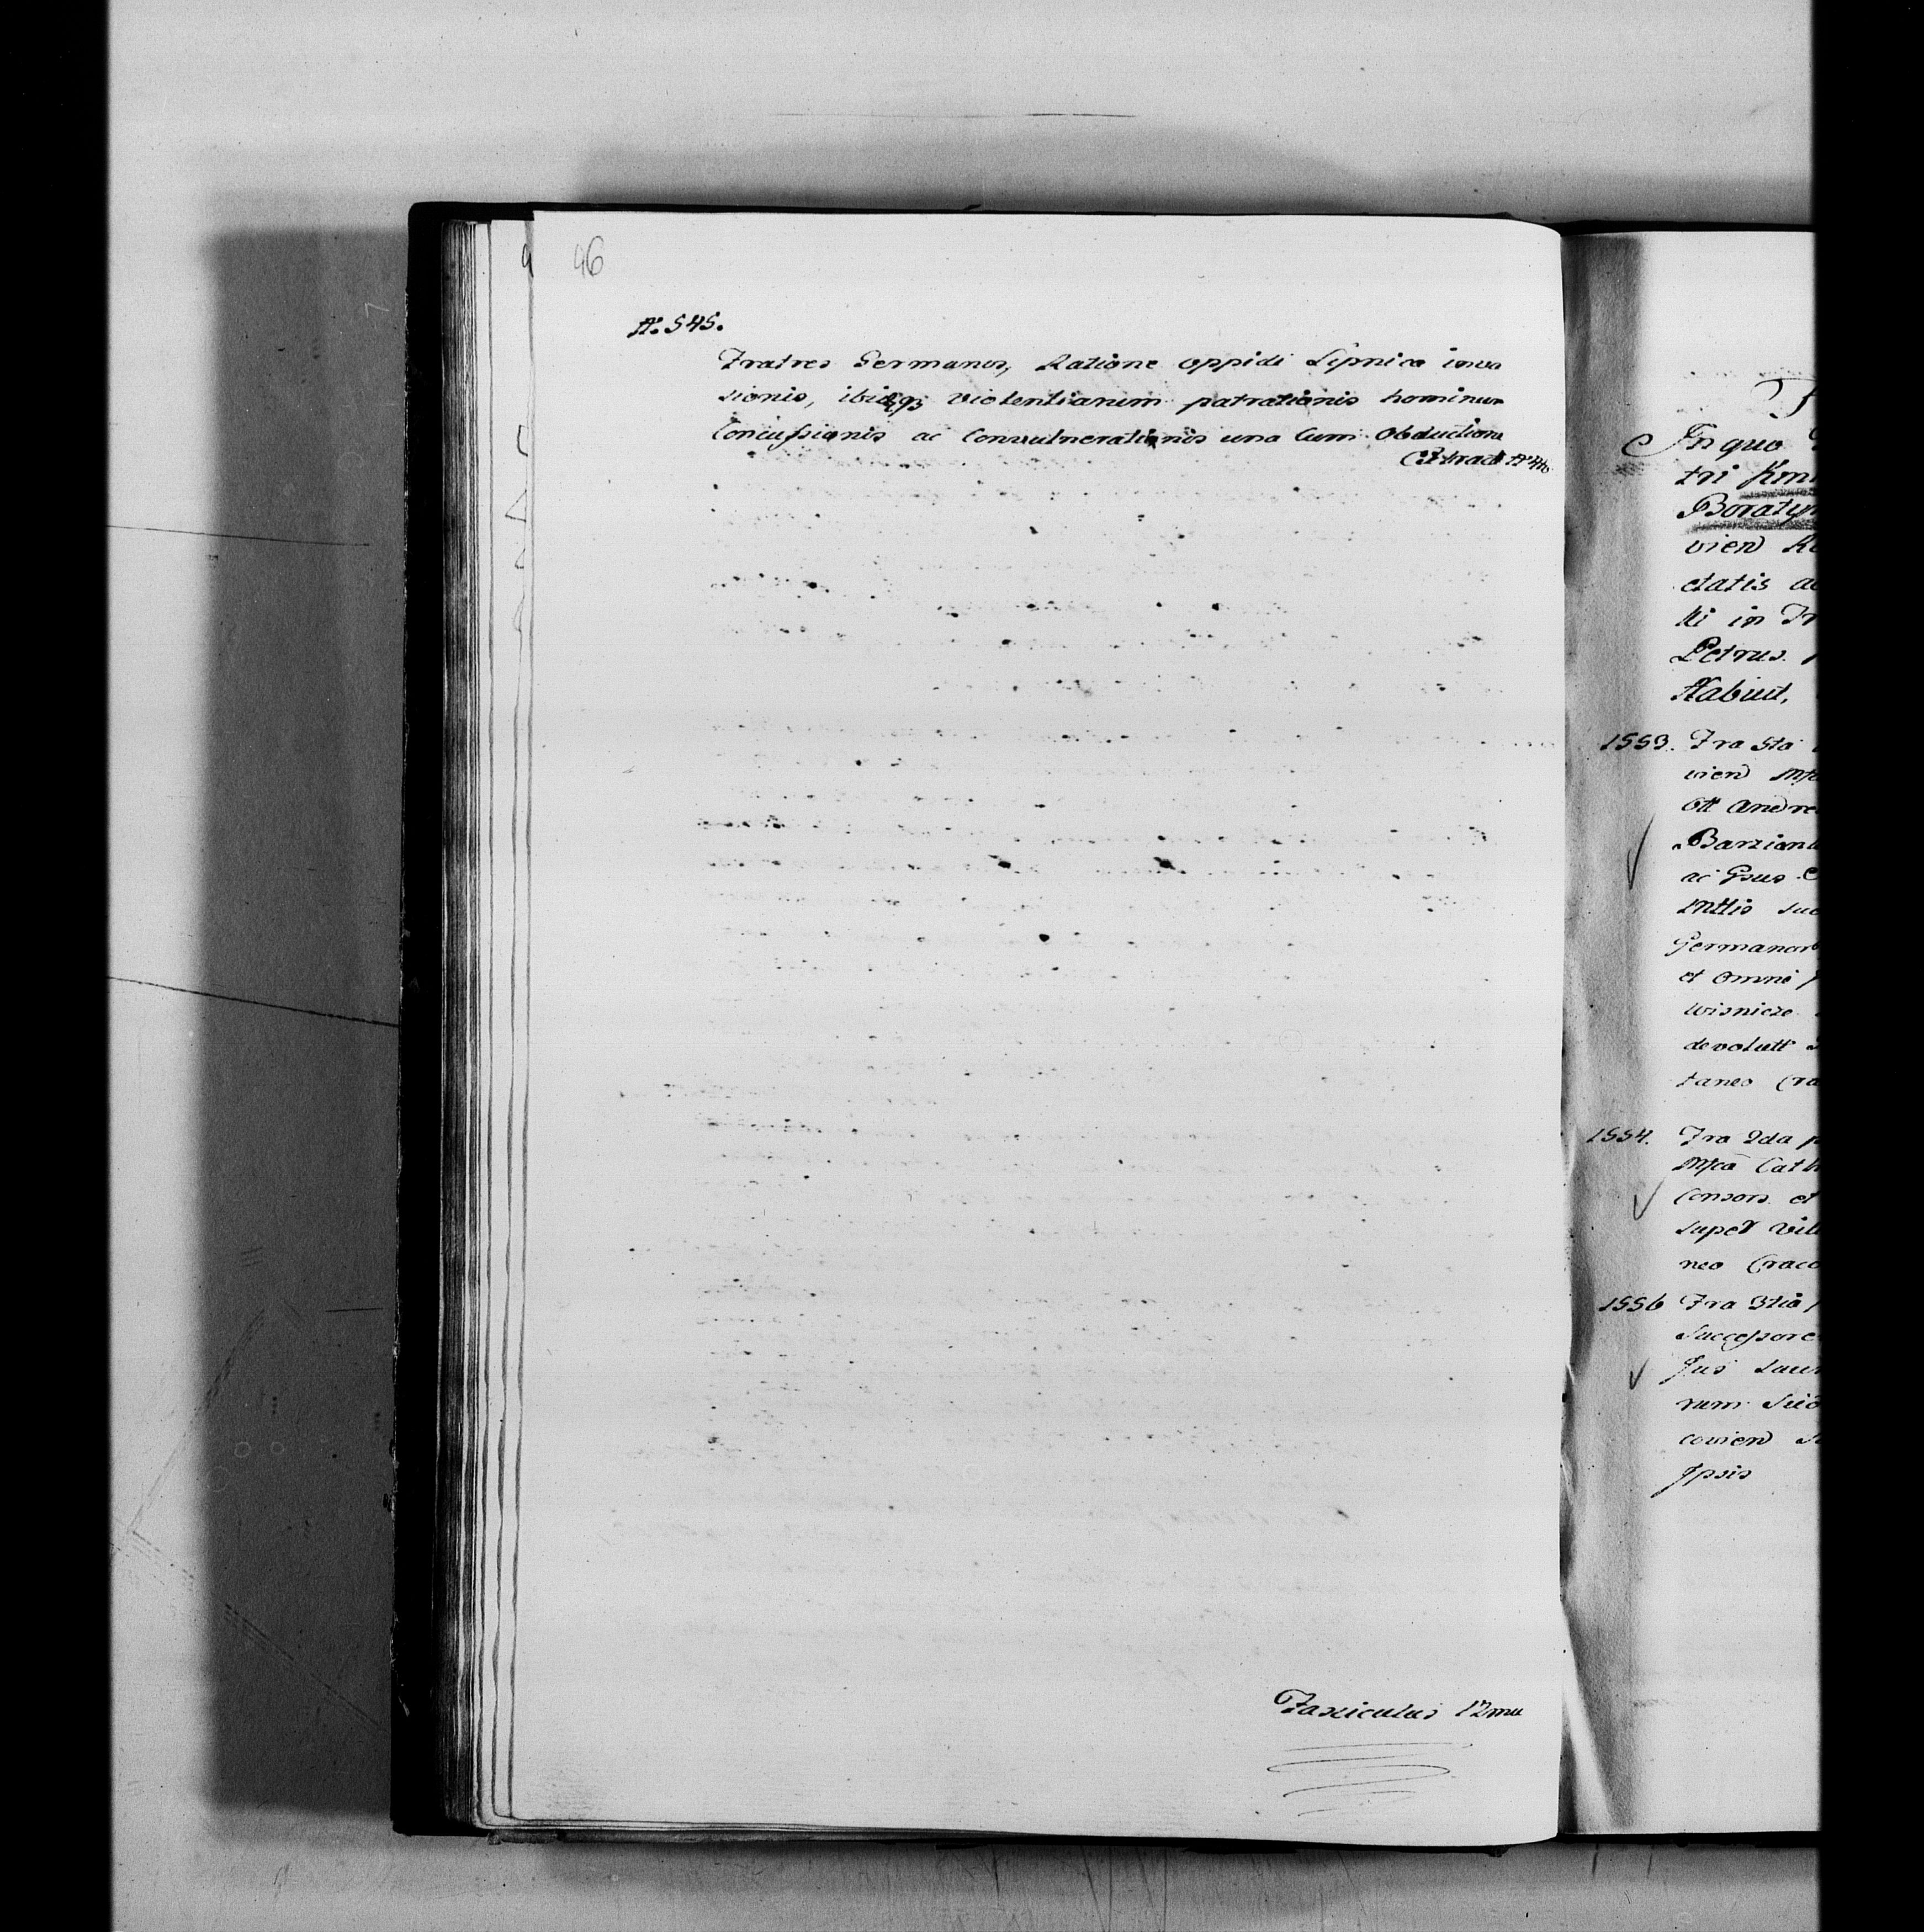 46
N. 545.
Fratres Germanos, Ratione oppidi Lipnica inva
sionis, ibidqz violentiarum patrationis hominum
Concussionis ac Convulnerationis una Cum Obductione
Extract
Fasciculus 12mu
In quo
tri Kmi
Boratyn
vien
etatis ac
ki in Tr
Petrus.
Habuit,
1553. Fra sta
vien Mfc
ott Andre
Barzian
ac Gsus
Mttis suc
Germanor
et Omni
Wisnicze
devolutt
taneo Cra
1554. Fra 2da p
Mfca Cath
Consors et
super vill
neo Craco
1556 Fra 3tia
Successore
Jus
rum
covien
Ipsis